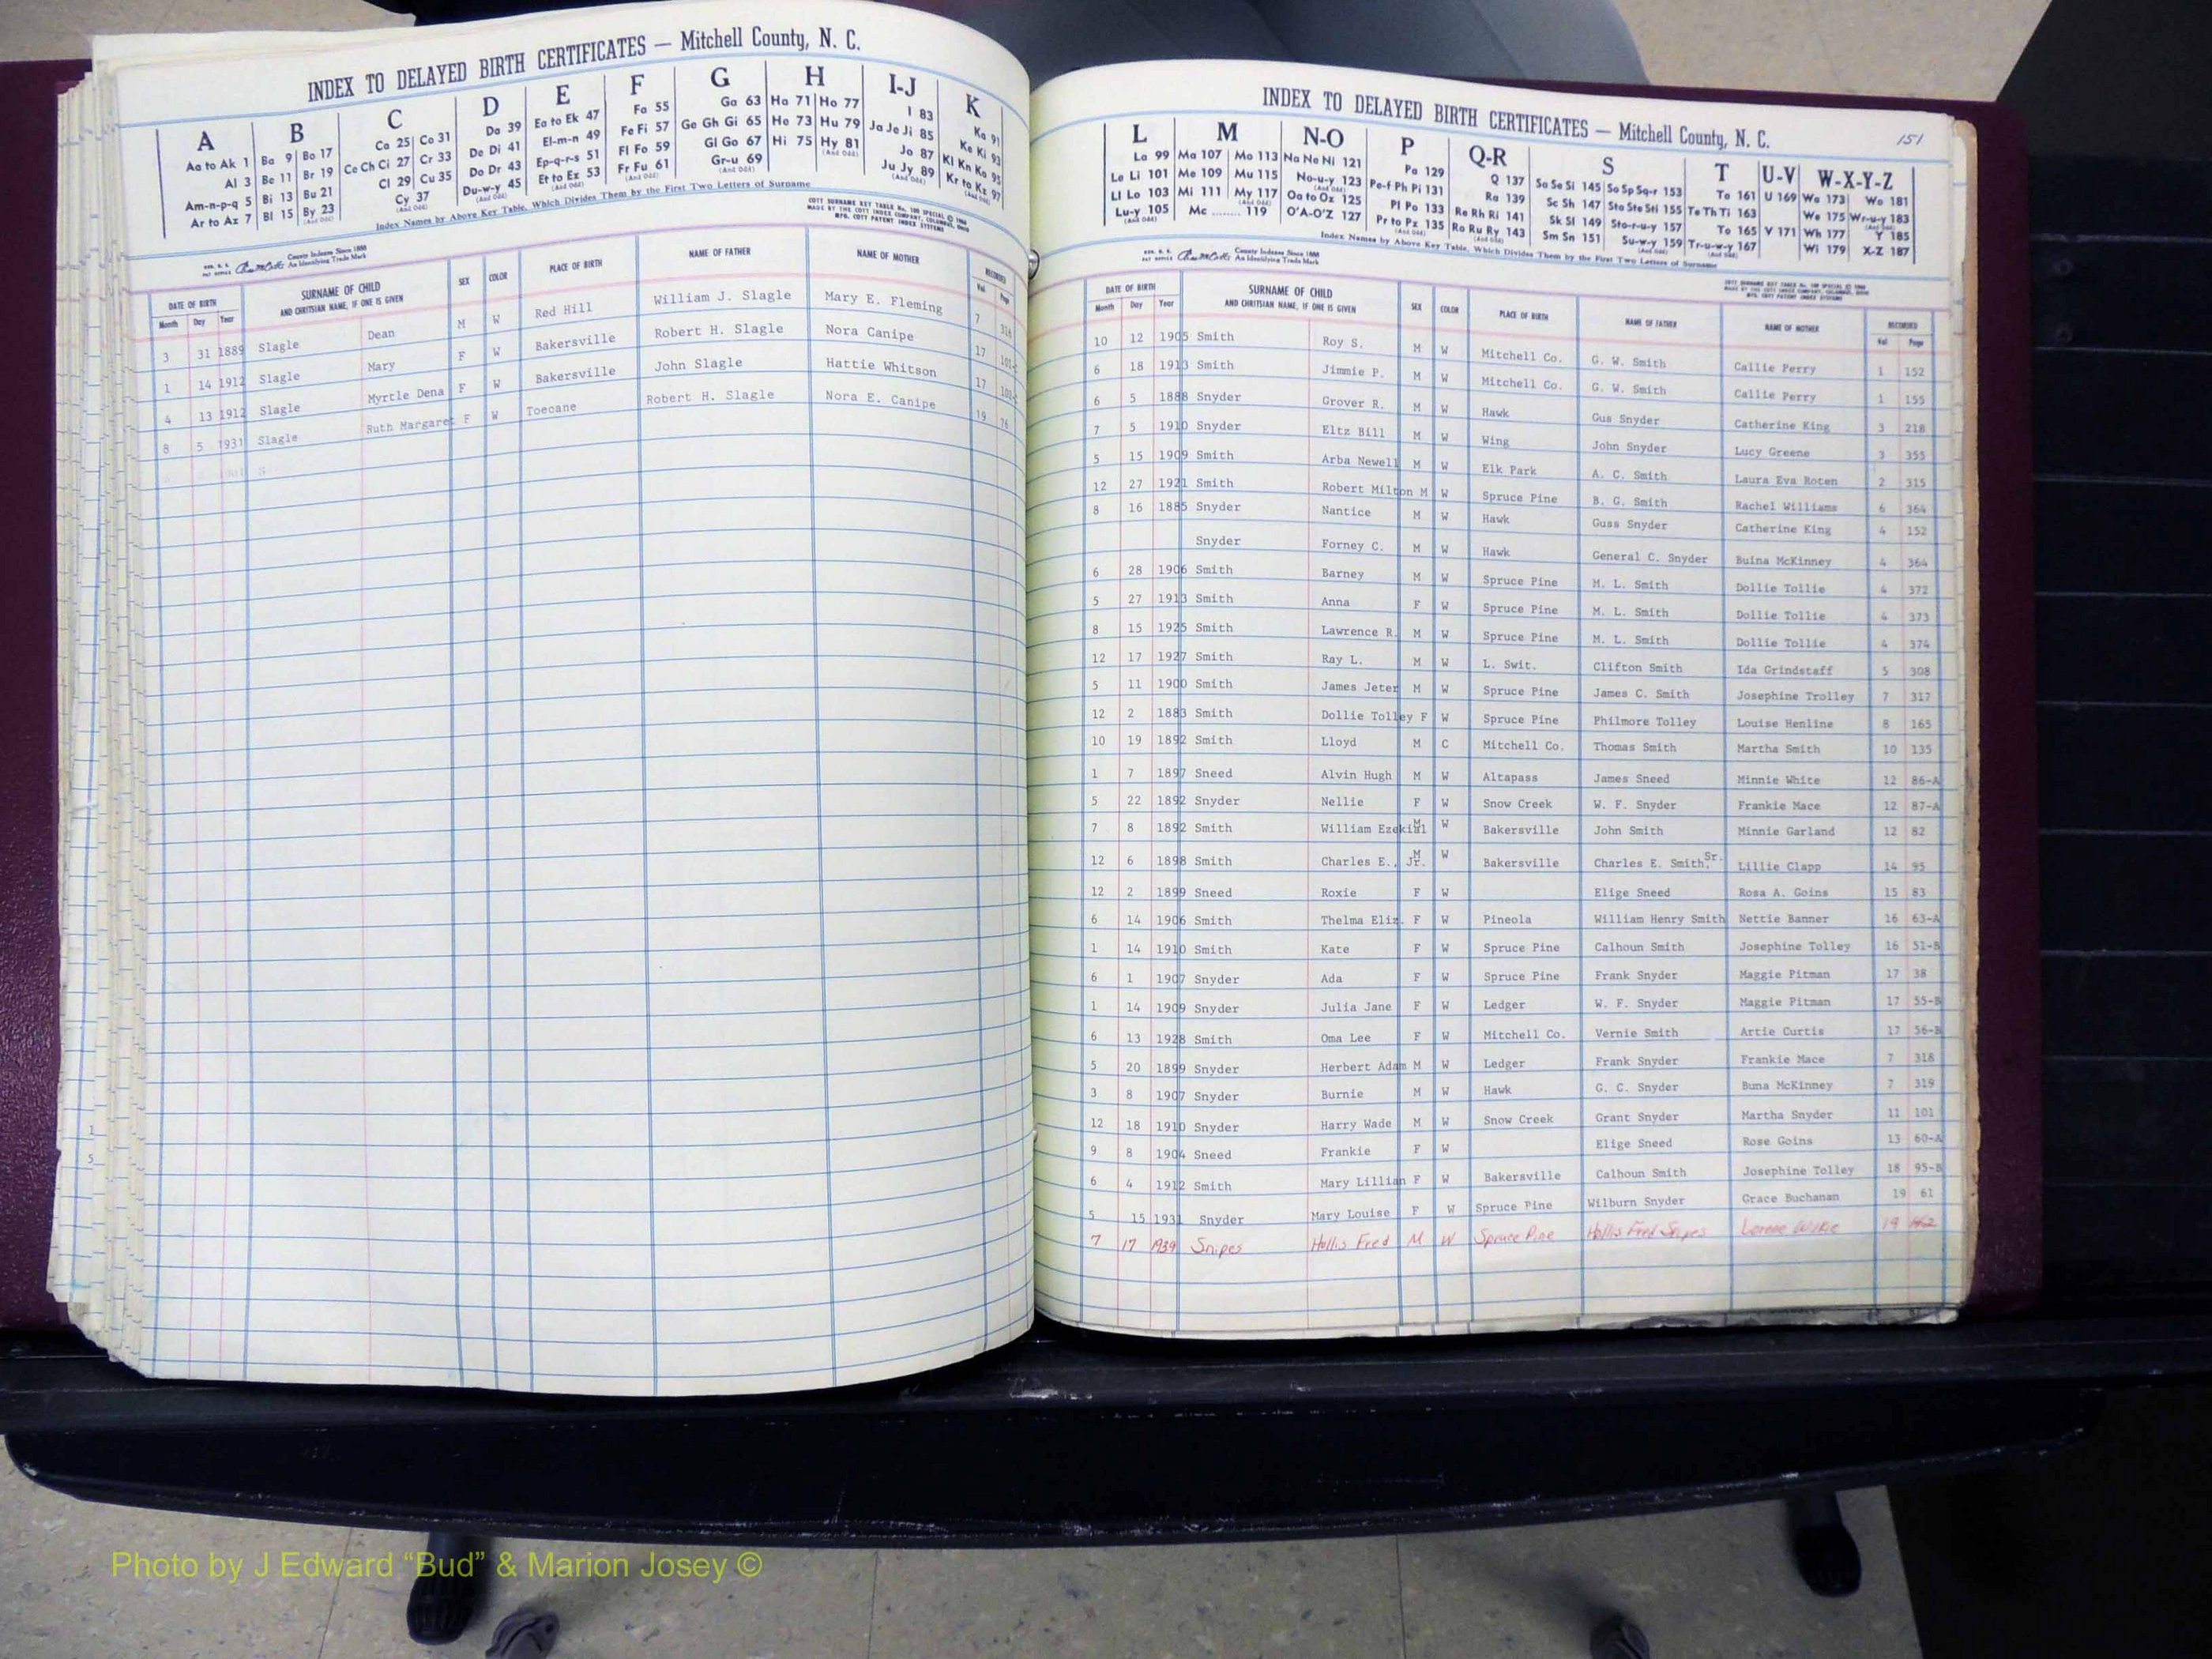 INDEX TO DELAYED BIRTH CERTIFICATES — Mitchell County, N. C.
A B C D E F G H I-J K
Aa to Ak 1 Ba 9 Bo 17 Ca 25 Co 31 Da 39 Ea to Ek 47 Fa 55 Ga 63 Ha 71 Ho 77 I 83 Ka 91
Al 3 Be 11 Br 19 Ce Ch Ci 27 Cr 33 De Di 41 El-m-n 49 Fe Fi 57 Ge Gh Gi 65 He 73 Hu 79 Ja Je Ji 85 Ke Ki 93
Am-n-p-q 5 Bi 13 Bu 21 Cl 29 Cu 35 Do Dr 43 Ep-q-r-s 51 Fl Fo 59 Gl Go 67 Hi 75 Hy 81 Jo 87 Kl Kn Ko 95
Ar to Az 7 Bl 15 By 23 Cy 37 Du-w-y 45 Et to Ez 53 Fr Fu 61 Gr-u 69 Ju Jy 89 Kr to Kz 97
Index Names by Above Key Table, Which Divides Them by the First Two Letters of Surname
County Indexes Since 1888
An Identifying Trade Mark
DATE OF BIRTH SURNAME OF CHILD AND CHRITSIAN NAME, IF ONE IS GIVEN SEX COLOR PLACE OF BIRTH NAME OF FATHER NAME OF MOTHER RECORDED
Month Day Year Vol. Page
3 31 1889 Slagle Dean M W Red Hill William J. Slagle Mary E. Fleming 7 316
1 14 1912 Slagle Mary F W Bakersville Robert H. Slagle Nora Canipe 17
4 13 1912 Slagle Myrtle Dena F W Bakersville John Slagle Hattie Whitson 17
8 5 1931 Slagle Ruth Margaret F W Toecane Robert H. Slagle Nora E. Canipe 19 76
INDEX TO DELAYED BIRTH CERTIFICATES — Mitchell County, N. C.
151
L M N-O P Q-R S T U-V W-X-Y-Z
La 99 Ma 107 Mo 113 Na Ne Ni 121 Pa 129 Q 137 Sa Se Si 145 So Sp Sq-r 153 Ta 161 U 169 Wa 173 Wo 181
Le Li 101 Me 109 Mu 115 No-u-y 123 Pe-f Ph Pi 131 Ra 139 Sc Sh 147 Sta Ste Sti 155 Te Th Ti 163 We 175 Wr-u-y 183
Ll Lo 103 Mi 111 My 117 Oa to Oz 125 Pl Po 133 Re Rh Ri 141 Sk Sl 149 Sto-r-u-y 157 To 165 V 171 Wh 177 Y 185
Lu-y 105 Mc ........ 119 O'A-O'Z 127 Pr to Pz 135 Ro Ru Ry 143 Sm Sn 151 Su-w-y 159 Tr-u-w-y 167 Wi 179 X-Z 187
Index Names by Above Key Table, Which Divides Them by the First Two Letters of Surname
County Indexes Since 1888
An Identifying Trade Mark
DATE OF BIRTH SURNAME OF CHILD AND CHRITSIAN NAME, IF ONE IS GIVEN SEX COLOR PLACE OF BIRTH NAME OF FATHER NAME OF MOTHER RECORDED
Month Day Year Vol. Page
10 12 1905 Smith Roy S. M W Mitchell Co. G. W. Smith Callie Perry 1 152
6 18 1913 Smith Jimmie P. M W Mitchell Co. G. W. Smith Callie Perry 1 155
6 5 1888 Snyder Grover R. M W Hawk Gus Snyder Catherine King 3 218
7 5 1910 Snyder Eltz Bill M W Wing John Snyder Lucy Greene 3 355
5 15 1909 Smith Arba Newell M W Elk Park A. C. Smith Laura Eva Roten 2 315
12 27 1921 Smith Robert Milton M W Spruce Pine B. G. Smith Rachel Williams 6 364
8 16 1885 Snyder Nantice M W Hawk Guss Snyder Catherine King 4 152
Snyder Forney C. M W Hawk General C. Snyder Buina McKinney 4 364
6 28 1906 Smith Barney M W Spruce Pine M. L. Smith Dollie Tollie 4 372
5 27 1913 Smith Anna F W Spruce Pine M. L. Smith Dollie Tollie 4 373
8 15 1925 Smith Lawrence R. M W Spruce Pine M. L. Smith Dollie Tollie 4 374
12 17 1927 Smith Ray L. M W L. Swit. Clifton Smith Ida Grindstaff 5 308
5 11 1900 Smith James Jeter M W Spruce Pine James C. Smith Josephine Trolley 7 317
12 2 1883 Smith Dollie Tolley F W Spruce Pine Philmore Tolley Louise Henline 8 165
10 19 1892 Smith Lloyd M C Mitchell Co. Thomas Smith Martha Smith 10 135
1 7 1897 Sneed Alvin Hugh M W Altapass James Sneed Minnie White 12 86-A
5 22 1892 Snyder Nellie F W Snow Creek W. F. Snyder Frankie Mace 12 87-A
7 8 1892 Smith William Ezekial M W Bakersville John Smith Minnie Garland 12 82
12 6 1898 Smith Charles E., Jr. M W Bakersville Charles E. Smith, Sr. Lillie Clapp 14 95
12 2 1899 Sneed Roxie F W Elige Sneed Rosa A. Goins 15 83
6 14 1906 Smith Thelma Eliz. F W Pineola William Henry Smith Nettie Banner 16 63-A
1 14 1910 Smith Kate F W Spruce Pine Calhoun Smith Josephine Tolley 16 51-B
6 1 1907 Snyder Ada F W Spruce Pine Frank Snyder Maggie Pitman 17 38
1 14 1909 Snyder Julia Jane F W Ledger W. F. Snyder Maggie Pitman 17 55-B
6 13 1928 Smith Oma Lee F W Mitchell Co. Vernie Smith Artie Curtis 17 56-B
5 20 1899 Snyder Herbert Adam M W Ledger Frank Snyder Frankie Mace 7 318
3 8 1907 Snyder Burnie M W Hawk G. C. Snyder Buna McKinney 7 319
12 18 1910 Snyder Harry Wade M W Snow Creek Grant Snyder Martha Snyder 11 101
9 8 1904 Sneed Frankie F W Elige Sneed Rose Goins 13 60-A
6 4 1912 Smith Mary Lillian F W Bakersville Calhoun Smith Josephine Tolley 18 95-B
5 15 1931 Snyder Mary Louise F W Spruce Pine Wilburn Snyder Grace Buchanan 19 61
7 17 1939 Snipes Hollis Fred M W Spruce Pine Hollis Fred Snipes Lorene Wilkie 19
Photo by J Edward “Bud” & Marion Josey ©